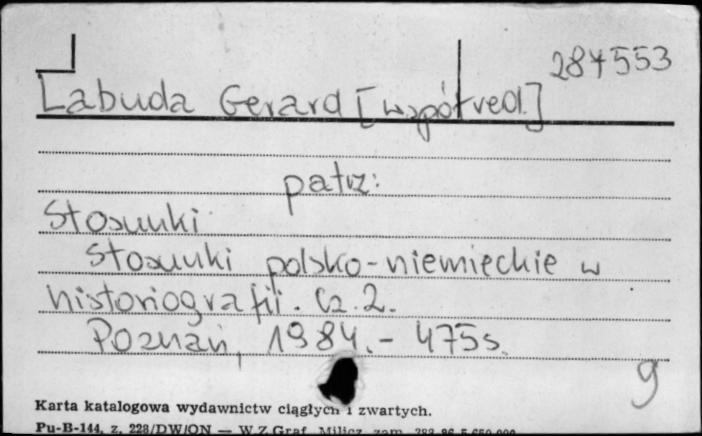 284553
Labuda Gerard [współred.]
patrz:
Stosunki
Stosunki polsko-niemieckie w
historiografii. Cz. 2.
Poznań, 1984. - 475 s.
9
Karta katalogowa wydawnictw ciągłych i zwartych.
Pu-B-144, z. 228/DW/ON — W.Z.Graf. Milicz zam.